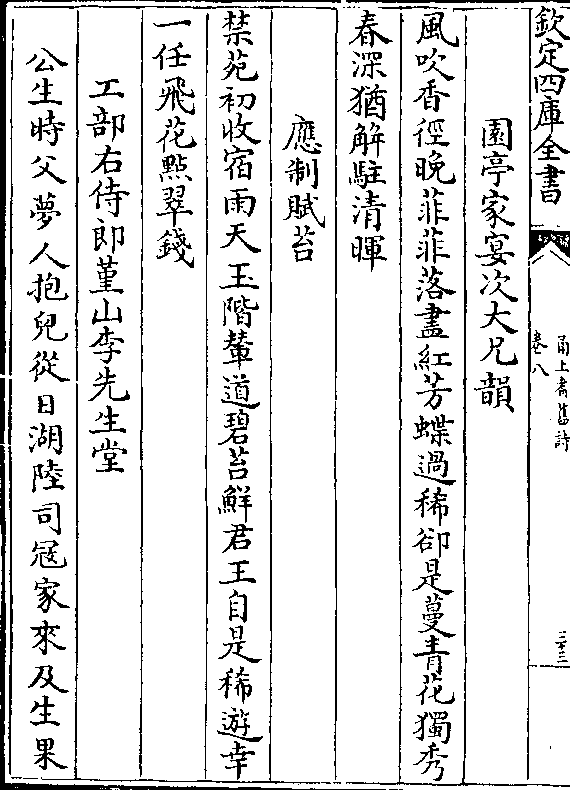 欽定四庫全書
甬上耆舊詩
卷八
三十三
園亭家宴次大兄韻
風吹香徑晚菲菲落盡紅芳蝶過稀卻是蔓青花獨秀
春深猶解駐清暉
應制賦苔
禁苑初收宿雨天玉階輦道碧苔鮮君王自是稀遊幸
一任飛花點翠錢
工部右侍郎堇山李先生堂
公生時父夢人抱兒從日湖陸司冦家來及生果